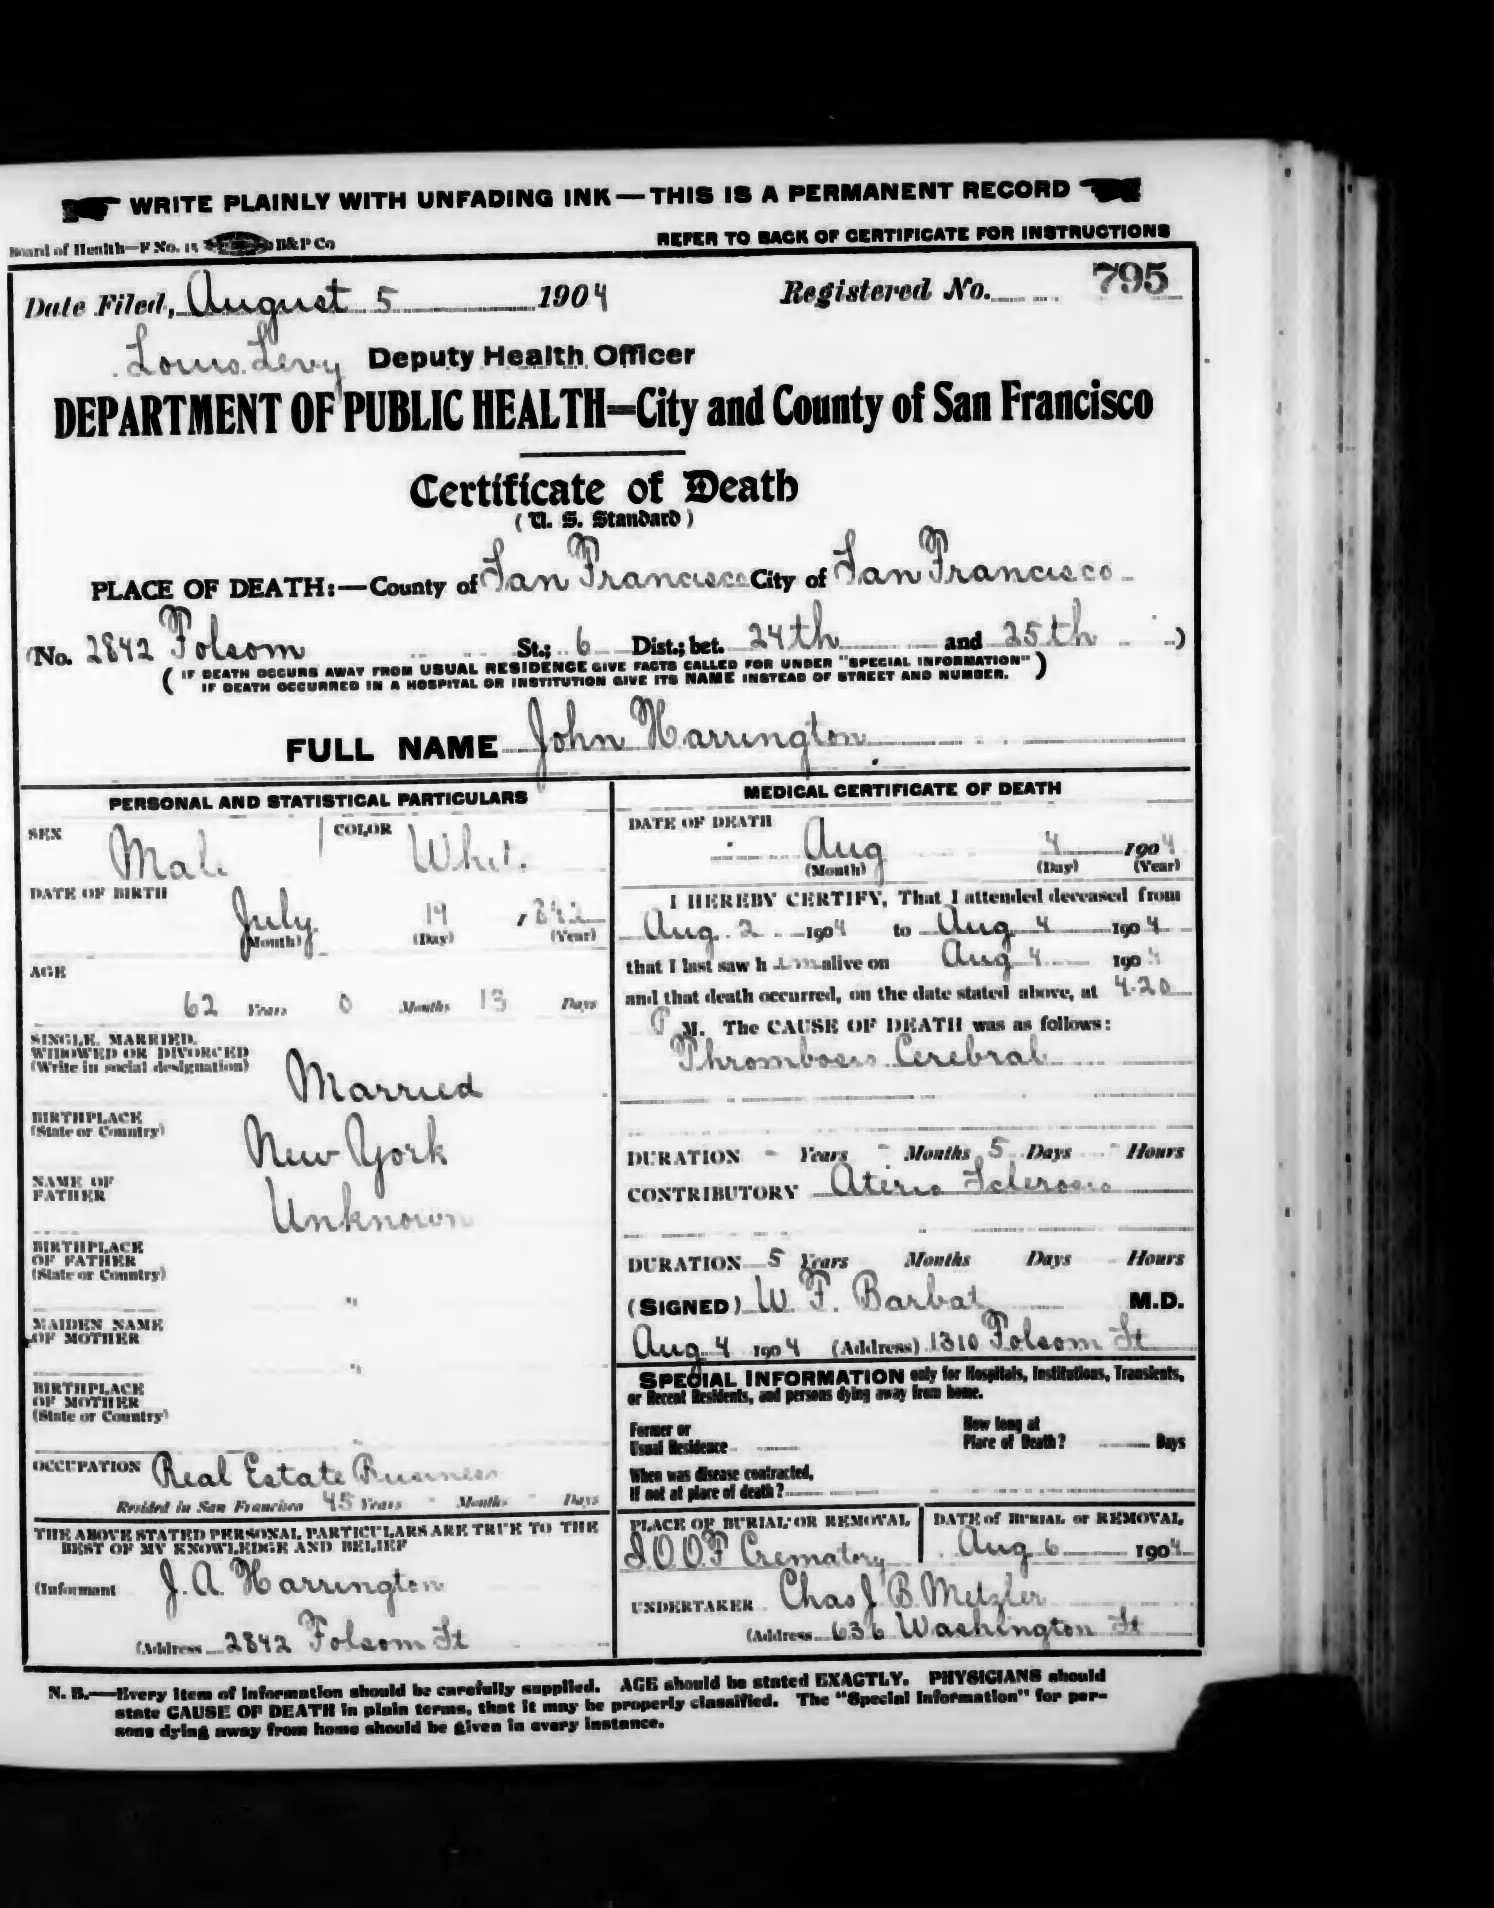 WRITE PLAINLY WITH UNFADING INK—THIS IS A PERMANENT RECORD
Board of Health—F No. 15 B&P Co
REFER TO BACK OF CERTIFICATE FOR INSTRUCTIONS
Date Filed, August 5 1904 Registered No. 795
Louis Levy Deputy Health Officer
DEPARTMENT OF PUBLIC HEALTH=City and County of San Francisco
Certificate of Death
(U. S. Standard)
PLACE OF DEATH:—County of San Francisco City of San Francisco
(No. 2842 Folsom St.; 6 Dist.; bet. 24th and 25th )
( IF DEATH OCCURS AWAY FROM USUAL RESIDENCE GIVE FACTS CALLED FOR UNDER "SPECIAL INFORMATION" )
IF DEATH OCCURRED IN A HOSPITAL OR INSTITUTION GIVE ITS NAME INSTEAD OF STREET AND NUMBER.
FULL NAME John Harrington
PERSONAL AND STATISTICAL PARTICULARS
SEX Male COLOR Whit.
DATE OF BIRTH
July 19 , 842
(Month) (Day) (Year)
AGE
62 Years 0 Months 13 Days
SINGLE, MARRIED,
WIDOWED OR DIVORCED
(Write in social designation)
Married
BIRTHPLACE
(State or Country)
New York
NAME OF
FATHER
Unknown
BIRTHPLACE
OF FATHER
(State or Country)
"
MAIDEN NAME
OF MOTHER
"
BIRTHPLACE
OF MOTHER
(State or Country)
"
OCCUPATION Real Estate Business
Resided in San Francisco 45 Years - Months - Days
THE ABOVE STATED PERSONAL PARTICULARS ARE TRUE TO THE
BEST OF MY KNOWLEDGE AND BELIEF
(Informant J. A. Harrington
(Address 2842 Folsom St
MEDICAL CERTIFICATE OF DEATH
DATE OF DEATH
Aug 4 1904
(Month) (Day) (Year)
I HEREBY CERTIFY, That I attended deceased from
Aug. 2 1904 to Aug 4 1904
that I last saw h im alive on Aug 4 1904
and that death occurred, on the date stated above, at 4.20
P M. The CAUSE OF DEATH was as follows:
Thrombosis Cerebral
DURATION - Years - Months 5 Days - Hours
CONTRIBUTORY Aterio Sclerosis
DURATION 5 Years Months Days Hours
(SIGNED) W. F. Barbat M.D.
Aug 4 1904 (Address) 1310 Folsom St
SPECIAL INFORMATION only for Hospitals, Institutions, Transients,
or Recent Residents, and persons dying away from home.
Former or
Usual Residence
How long at
Place of Death? Days
When was disease contracted,
If not at place of death?
PLACE OF BURIAL OR REMOVAL
I.O.O.F Crematory
DATE of BURIAL or REMOVAL
Aug 6 1904
UNDERTAKER Chas J. B. Metzler
(Address 636 Washington St
N. B.—Every item of information should be carefully supplied. AGE should be stated EXACTLY. PHYSICIANS should
state CAUSE OF DEATH in plain terms, that it may be properly classified. The "Special Information" for per-
sons dying away from home should be given in every instance.